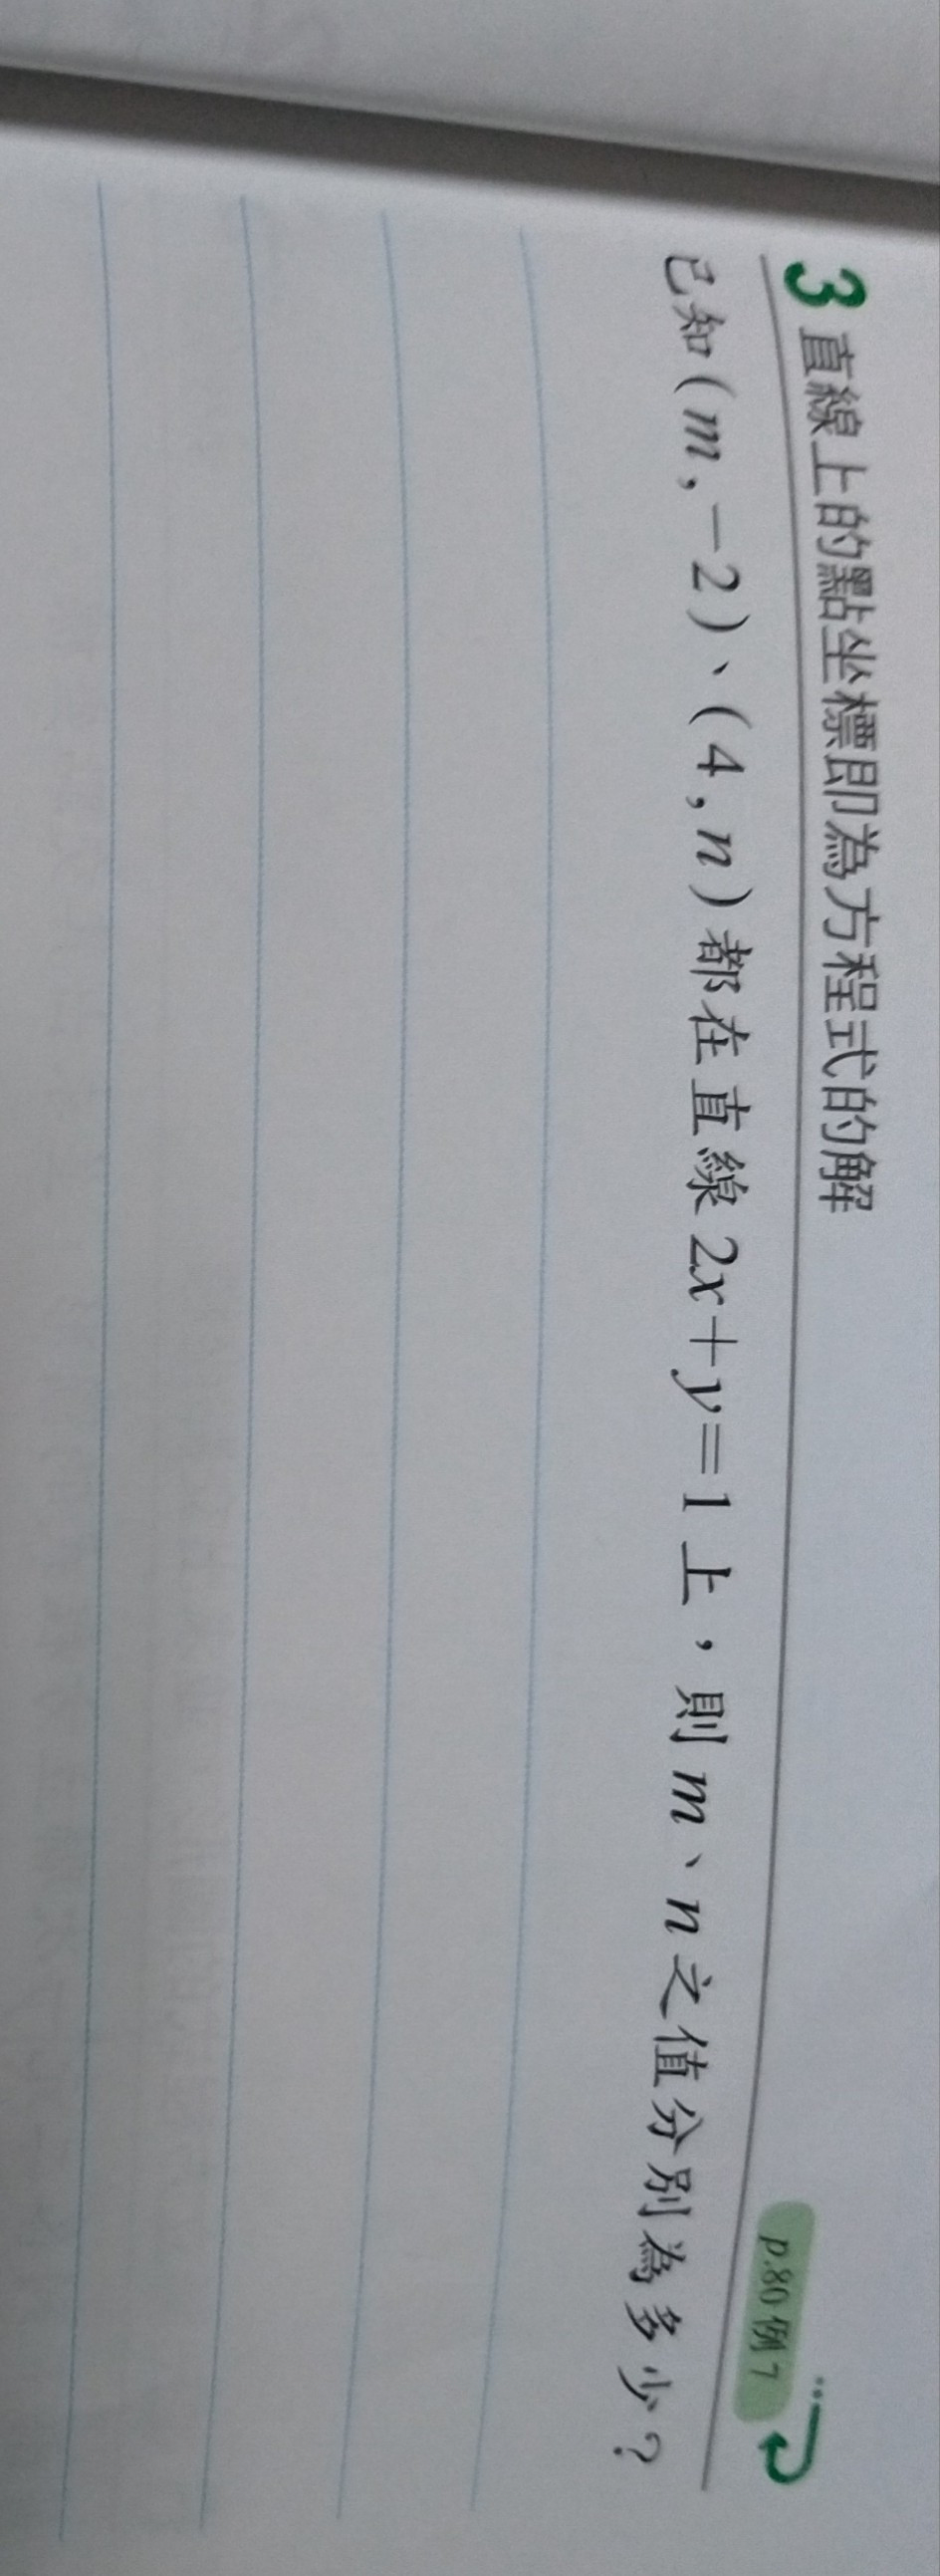 3 直線上的點坐標即為方程式的解
p.80 例 7
已知(m,-2)、(4,n)都在直線 2x+y=1 上,則 m、n 之值分別為多少?